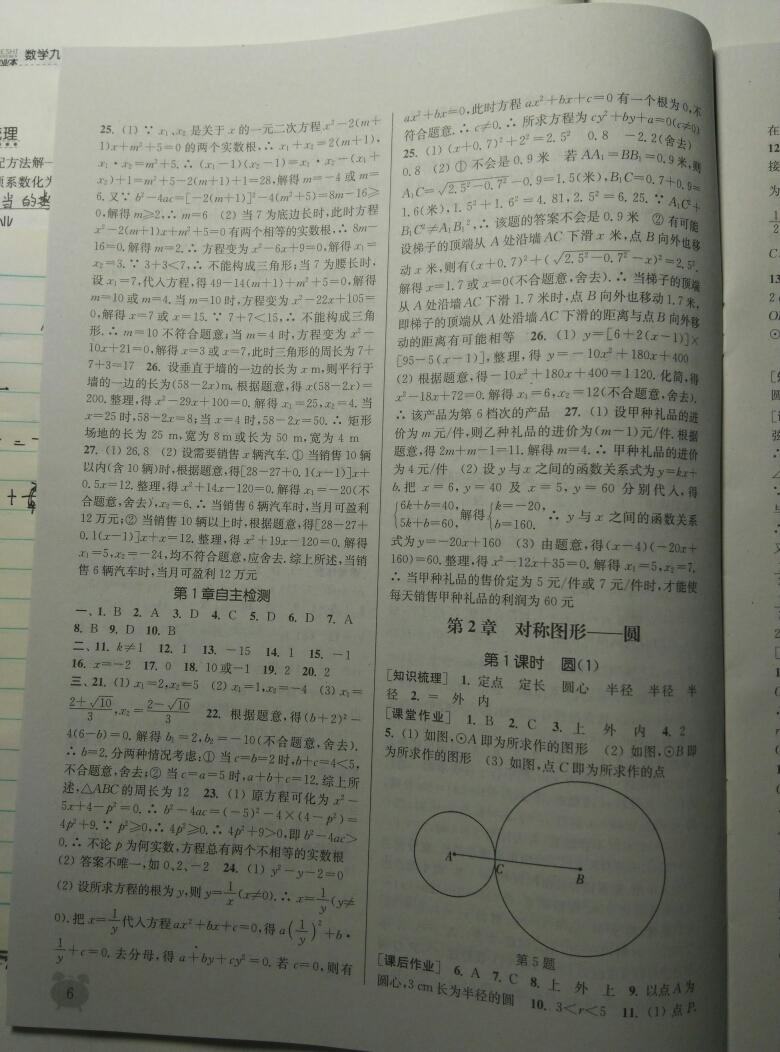 数学九
25. (1) ∵ x₁、x₂ 是关于 x 的一元二次方程 x²－2(m＋
1)x＋m²＋5＝0 的两个实数根,∴ x₁＋x₂＝2(m＋1),
x₁·x₂＝m²＋5.∴ (x₁－1)(x₂－1)＝x₁·x₂－(x₁＋
x₂)＋1＝m²＋5－2(m＋1)＋1＝28,解得 m＝－4 或 m＝
6.又∵ b²－4ac＝[－2(m＋1)]²－4(m²＋5)＝8m－16≥
0,解得 m≥2,∴ m＝6 (2) 当 7 为底边长时,此时方程
x²－2(m＋1)x＋m²＋5＝0 有两个相等的实数根,∴ 8m－
16＝0.解得 m＝2.∴ 方程变为 x²－6x＋9＝0,解得 x₁＝
x₂＝3.∵ 3＋3＜7,∴ 不能构成三角形;当 7 为腰长时,
设 x₁＝7,代入方程,得 49－14(m＋1)＋m²＋5＝0,解得
m＝10 或 m＝4.当 m＝10 时,方程变为 x²－22x＋105＝
0,解得 x＝7 或 x＝15.∵ 7＋7＜15,∴ 不能构成三角
形.∴ m＝10 不符合题意;当 m＝4 时,方程变为 x²－
10x＋21＝0,解得 x＝3 或 x＝7,此时三角形的周长为 7＋
7＋3＝17 26. 设垂直于墙的一边的长为 x m,则平行于
墙的一边的长为(58－2x)m.根据题意,得 x(58－2x)＝
200.整理,得 x²－29x＋100＝0.解得 x₁＝25,x₂＝4.当
x＝25 时,58－2x＝8;当 x＝4 时,58－2x＝50.∴ 矩形
场地的长为 25 m,宽为 8 m 或长为 50 m,宽为 4 m
27. (1) 26.8 (2) 设需要销售 x 辆汽车.① 当销售 10 辆
以内(含 10 辆)时,根据题意,得[28－27＋0.1(x－1)]x＋
0.5x＝12.整理,得 x²＋14x－120＝0.解得 x₁＝－20(不
合题意,舍去),x₂＝6.∴ 当销售 6 辆汽车时,当月可盈利
12 万元;② 当销售 10 辆以上时,根据题意,得[28－27＋
0.1(x－1)]x＋x＝12.整理,得 x²＋19x－120＝0.解得
x₁＝5,x₂＝－24,均不符合题意,应舍去.综上所述,当销
售 6 辆汽车时,当月可盈利 12 万元
第 1 章自主检测
一、1. B 2. A 3. D 4. C 5. D 6. D 7. A
8. B 9. D 10. B
二、11. k≠1 12. 1 13. －15 14. 1 15. －1
16. x＝－2 17. 0 18. 10 或－1 19. 2 20. 2
三、21. (1) x₁＝2,x₂＝5 (2) x₁＝1,x₂＝－4 (3) x₁＝
(2＋√10)/3,x₂＝(2－√10)/3 22. 根据题意,得(b＋2)²－
4(6－b)＝0.解得 b₁＝2,b₂＝－10(不合题意,舍去).
∴ b＝2.分两种情况考虑:① 当 c＝b＝2 时,b＋c＝4＜5,
不合题意,舍去;② 当 c＝a＝5 时,a＋b＋c＝12.综上所
述,△ABC 的周长为 12 23. (1) 原方程可化为 x²－
5x＋4－p²＝0.∴ b²－4ac＝(－5)²－4×(4－p²)＝
4p²＋9.∵ p²≥0,∴ 4p²≥0.∴ 4p²＋9＞0,即 b²－4ac＞
0.∴ 不论 p 为何实数,方程总有两个不相等的实数根
(2) 答案不唯一,如 0、2、－2 24. (1) y²－y－2＝0
(2) 设所求方程的根为 y,则 y＝1/x(x≠0).∴ x＝1/y(y≠
0).把 x＝1/y代入方程 ax²＋bx＋c＝0,得 a(1/y)²＋b·
1/y＋c＝0.去分母,得 a＋by＋cy²＝0.若 c＝0,则有
6
ax²＋bx＝0,此时方程 ax²＋bx＋c＝0 有一个根为 0,不
符合题意.∴ c≠0.∴ 所求方程为 cy²＋by＋a＝0(c≠0)
25. (1) (x＋0.7)²＋2²＝2.5² 0.8 －2.2(舍去)
0.8 (2) ① 不会是 0.9 米 若 AA₁＝BB₁＝0.9 米,则
A₁C＝√(2.5²－0.7²)－0.9＝1.5(米),B₁C＝0.7＋0.9＝
1.6(米),1.5²＋1.6²＝4.81,2.5²＝6.25.∵ A₁C²＋
B₁C²≠A₁B₁²,∴ 该题的答案不会是 0.9 米 ② 有可能
设梯子的顶端从 A 处沿墙 AC 下滑 x 米,点 B 向外也移
动 x 米,则有(x＋0.7)²＋(√(2.5²－0.7²)－x)²＝2.5².
解得 x＝1.7 或 x＝0(不合题意,舍去).∴ 当梯子的顶端
从 A 处沿墙 AC 下滑 1.7 米时,点 B 向外也移动 1.7 米,
即梯子的顶端从 A 处沿墙 AC 下滑的距离与点 B 向外移
动的距离有可能相等 26. (1) y＝[6＋2(x－1)]×
[95－5(x－1)],整理,得 y＝－10x²＋180x＋400
(2) 根据题意,得－10x²＋180x＋400＝1 120.化简,得
x²－18x＋72＝0.解得 x₁＝6,x₂＝12(不合题意,舍去).
∴ 该产品为第 6 档次的产品 27. (1) 设甲种礼品的进
价为 m 元/件,则乙种礼品的进价为(m－1)元/件.根据
题意,得 2m＋m－1＝11.解得 m＝4.∴ 甲种礼品的进价
为 4 元/件 (2) 设 y 与 x 之间的函数关系式为 y＝kx＋
b.把 x＝6,y＝40 及 x＝5,y＝60 分别代入,得
{6k＋b＝40, 5k＋b＝60, 解得{k＝－20, b＝160. ∴ y 与 x 之间的函数关系
式为 y＝－20x＋160 (3) 由题意,得(x－4)(－20x＋
160)＝60.整理,得 x²－12x＋35＝0.解得 x₁＝5,x₂＝7.
∴ 当甲种礼品的售价定为 5 元/件或 7 元/件时,才能使
每天销售甲种礼品的利润为 60 元
第 2 章 对称图形——圆
第 1 课时 圆(1)
[知识梳理] 1. 定点 定长 圆心 半径 半径 半
径 2. ＝ 外 内
[课堂作业] 1. B 2. C 3. 上 外 内 4. 2
5. (1) 如图,⊙A 即为所求作的图形 (2) 如图,⊙B 即
为所求作的图形 (3) 如图,点 C 即为所求作的点
A
C
B
第 5 题
[课后作业] 6. A 7. C 8. 上 外 上 9. 以点 A 为
圆心,3 cm 长为半径的圆 10. 3＜r＜5 11. (1) 点 P.